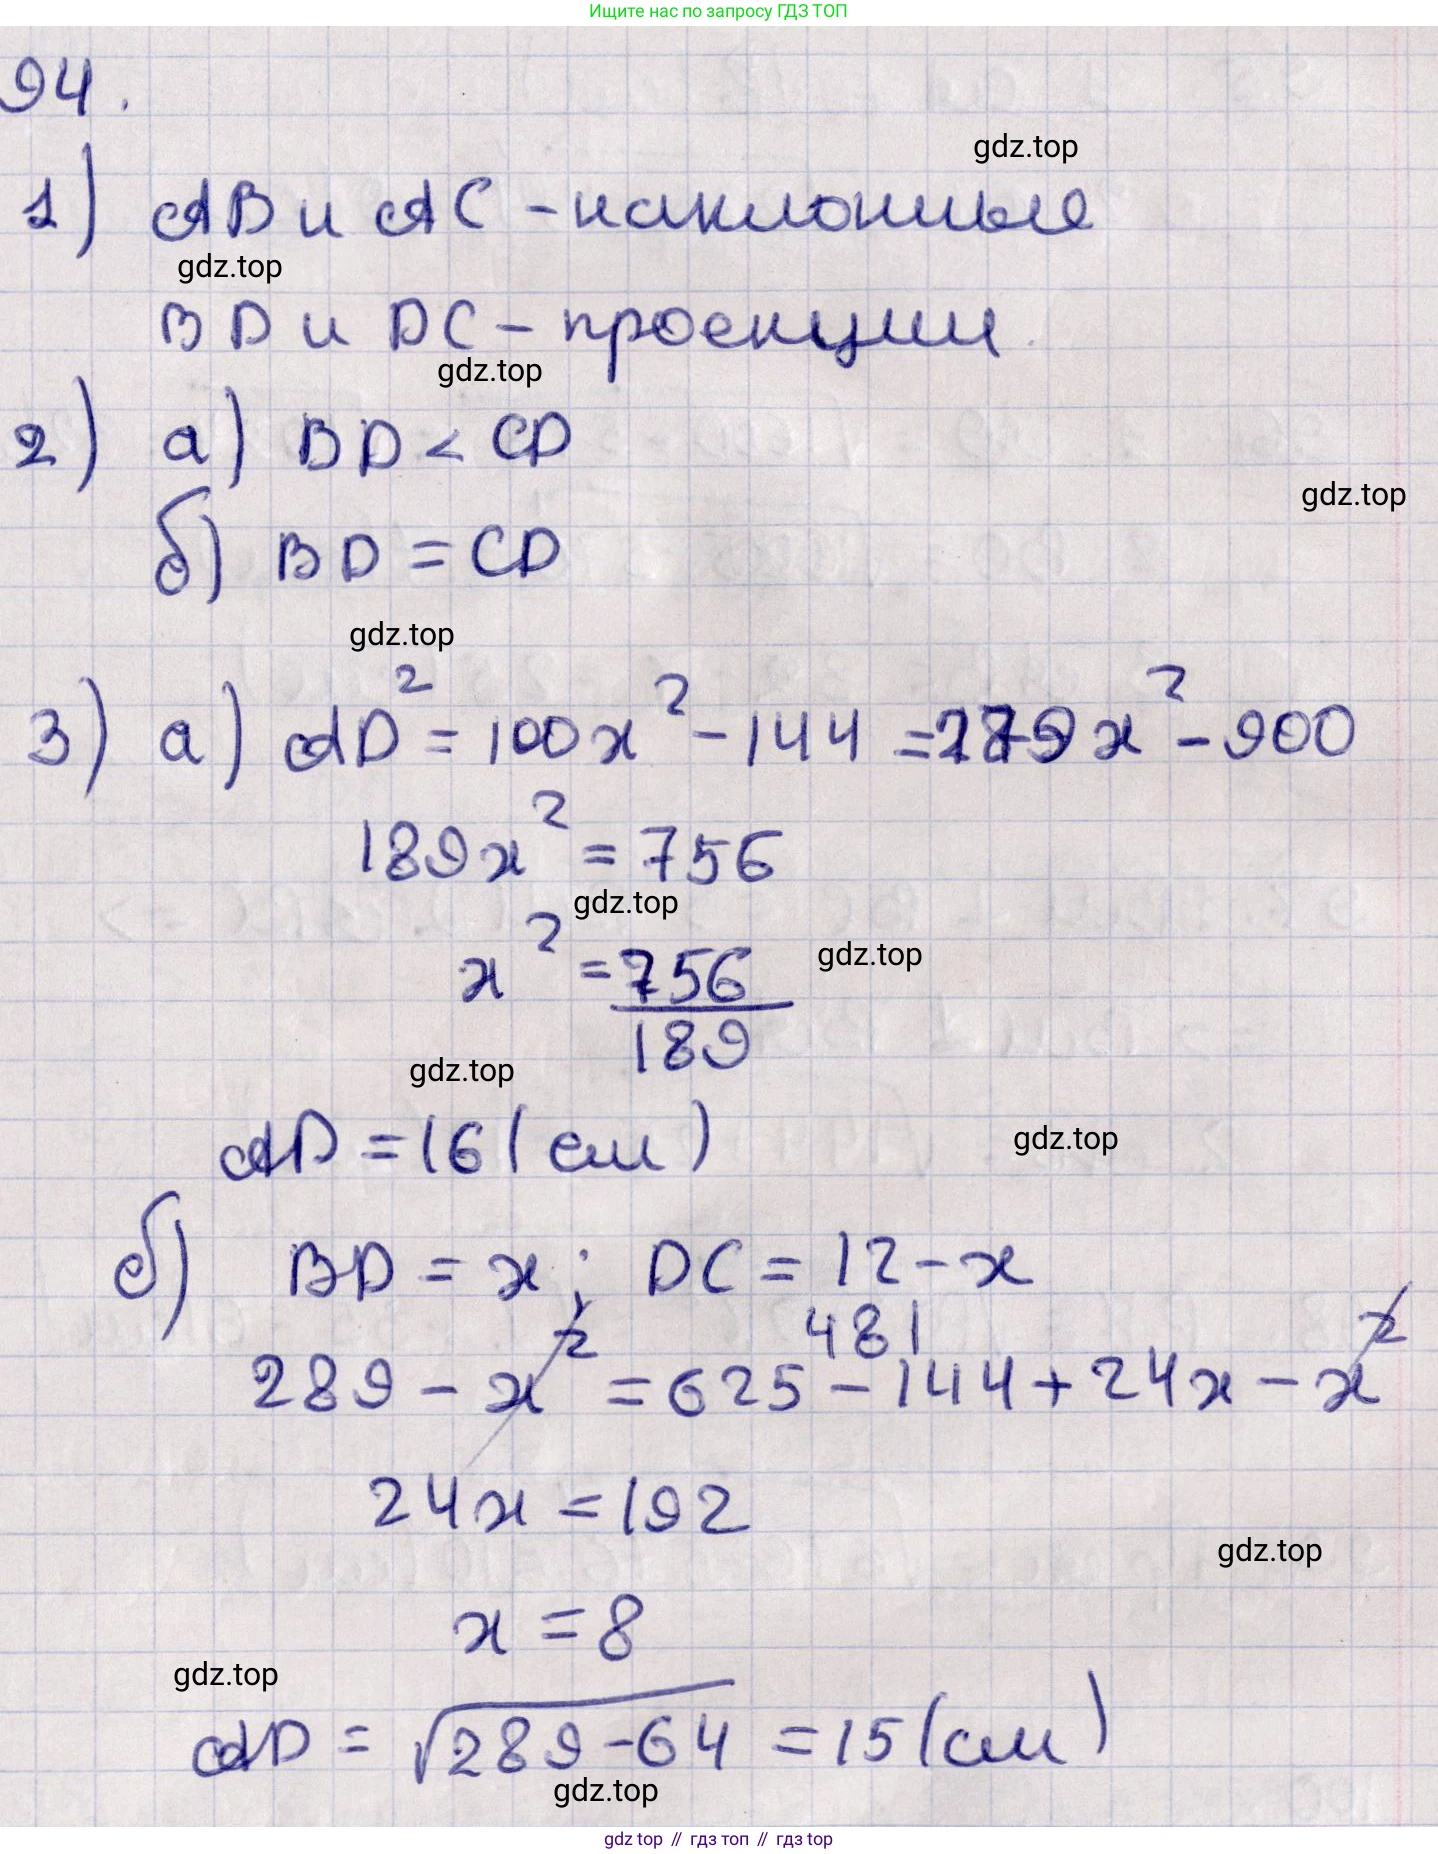 Ищите нас по запросу ГДЗ ТОП
94.
gdz.top
1) AB и AC - наклонные
gdz.top
BD и DC - проекции
gdz.top
2) a) BD < CD
gdz.top
б) BD = CD
gdz.top
3) a) AD² = 100x² - 144 = 289x² - 900
189x² = 756
gdz.top
x² = 756/189
gdz.top
gdz.top
AD = 16 (см)
gdz.top
б) BD = x; DC = 12 - x
481
289 - x² = 625 - 144 + 24x - x²
24x = 192
gdz.top
x = 8
gdz.top
AD = √289-64 = 15 (см)
gdz.top
gdz top // гдз топ // гдз top